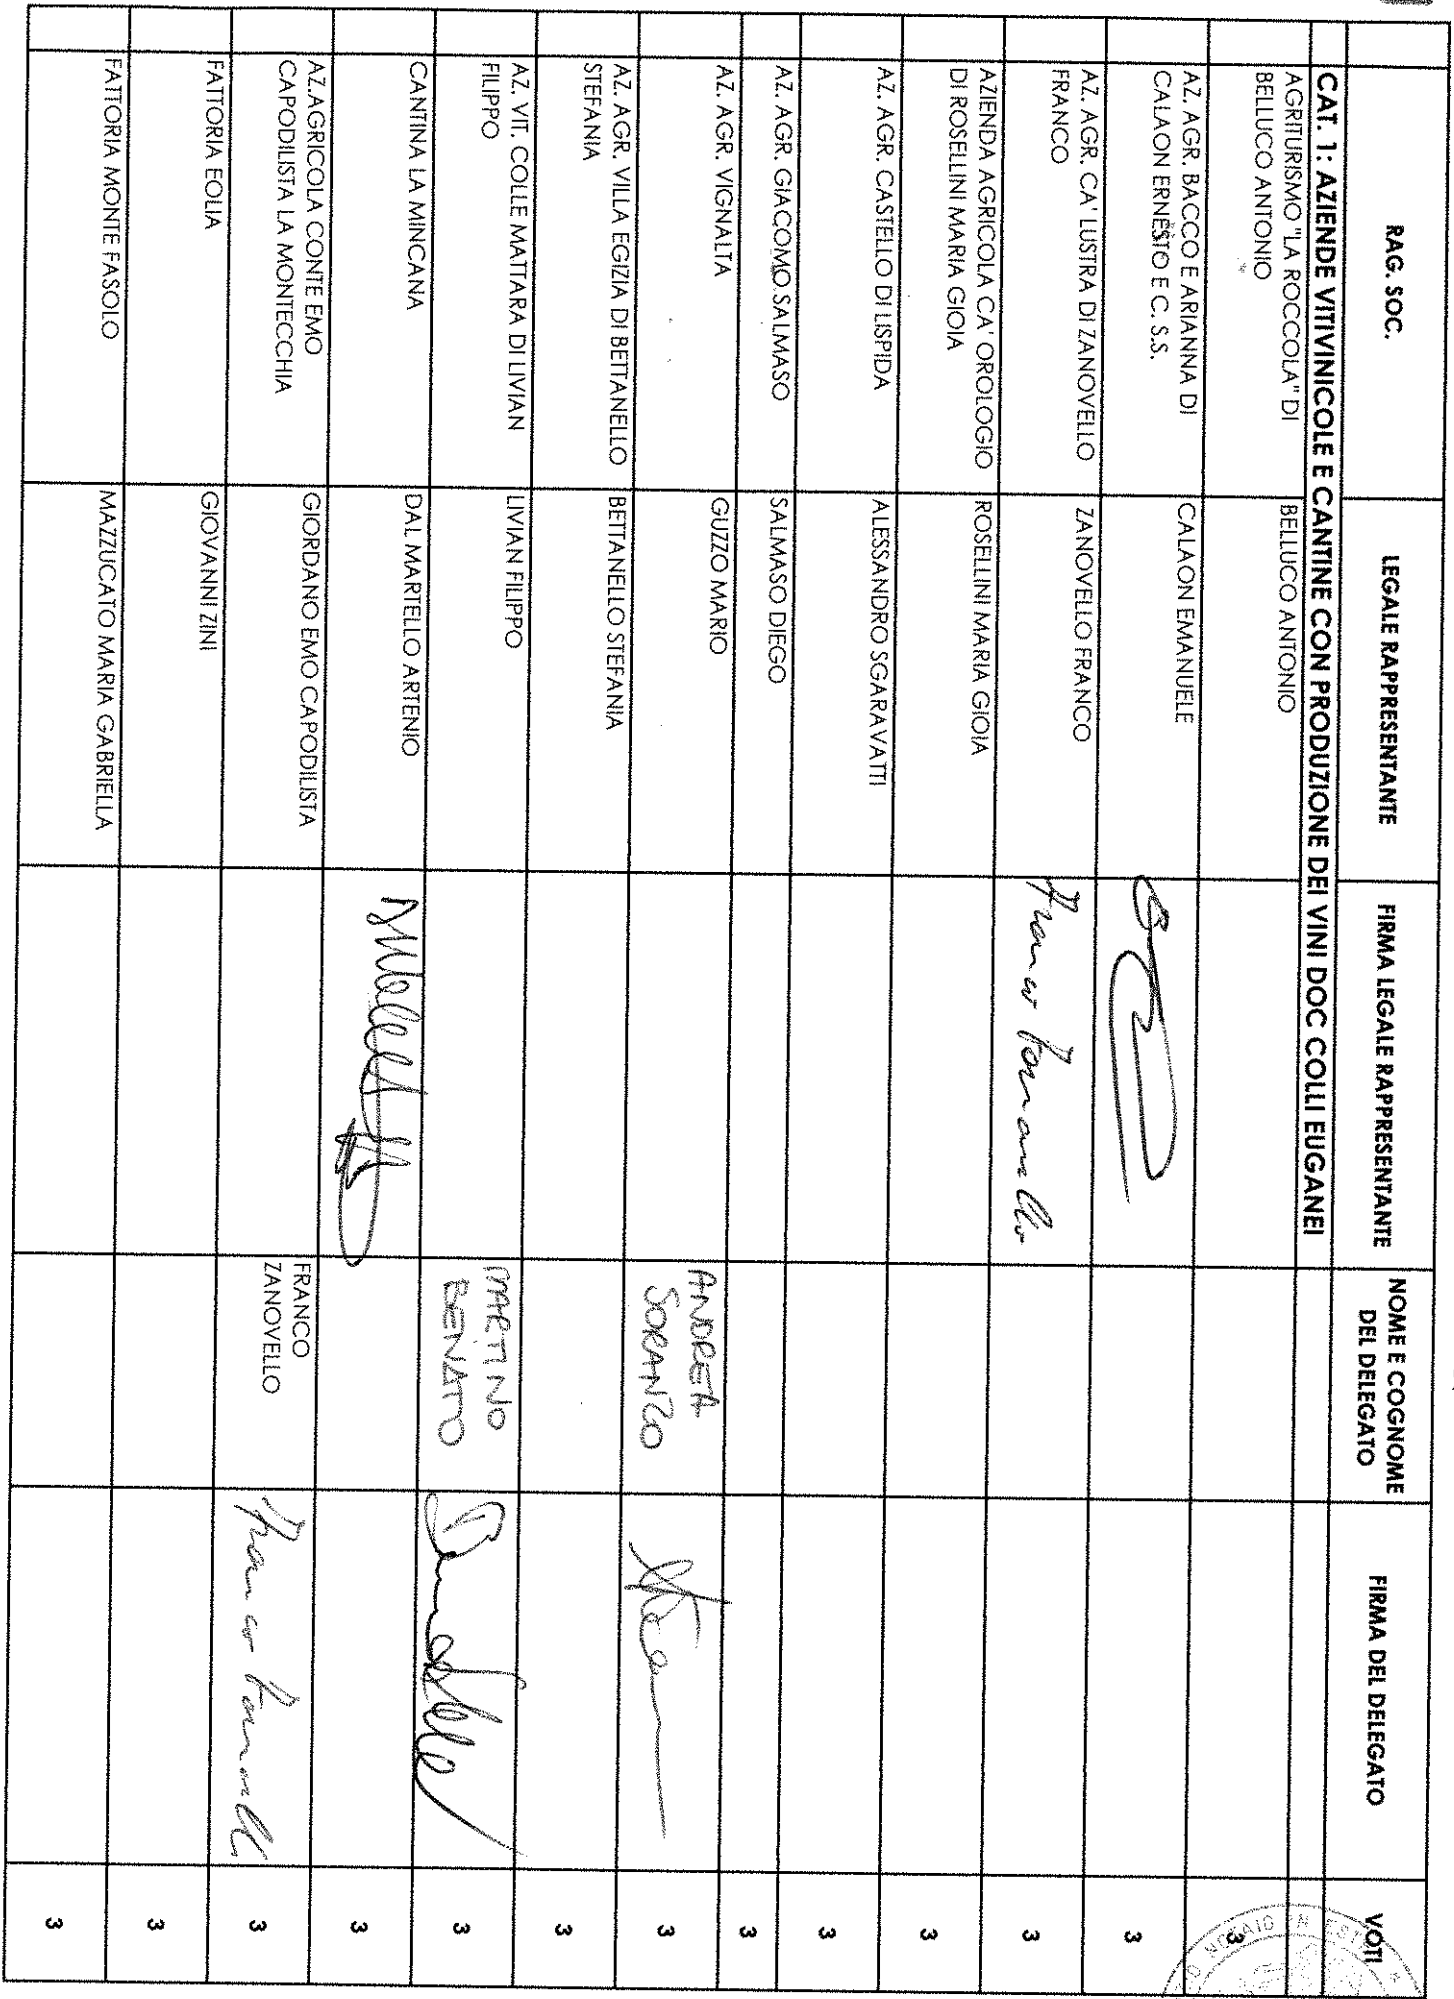 RAG. SOC.
LEGALE RAPPRESENTANTE
FIRMA LEGALE RAPPRESENTANTE
NOME E COGNOME
DEL DELEGATO
FIRMA DEL DELEGATO
VOTI
CAT. 1: AZIENDE VITIVINICOLE E CANTINE CON PRODUZIONE DEI VINI DOC COLLI EUGANEI
AGRITURISMO "LA ROCCOLA" DI
BELLUCO ANTONIO
BELLUCO ANTONIO
3
AZ. AGR. BACCO E ARIANNA DI
CALAON ERNESTO E C. S.S.
CALAON EMANUELE
3
AZ. AGR. CA' LUSTRA DI ZANOVELLO
FRANCO
ZANOVELLO FRANCO
Franco Zanovello
3
AZIENDA AGRICOLA CA' OROLOGIO
DI ROSELLINI MARIA GIOIA
ROSELLINI MARIA GIOIA
3
AZ. AGR. CASTELLO DI LISPIDA
ALESSANDRO SGARAVATTI
3
AZ. AGR. GIACOMO SALMASO
SALMASO DIEGO
3
AZ. AGR. VIGNALTA
GUZZO MARIO
ANDREA
SORANZO
3
AZ. AGR. VILLA EGIZIA DI BETTANELLO
STEFANIA
BETTANELLO STEFANIA
3
AZ. VIT. COLLE MATTARA DI LIVIAN
FILIPPO
LIVIAN FILIPPO
MARTINO
BENATO
3
CANTINA LA MINCANA
DAL MARTELLO ARTENIO
3
AZ.AGRICOLA CONTE EMO
CAPODILISTA LA MONTECCHIA
GIORDANO EMO CAPODILISTA
FRANCO
ZANOVELLO
Franco Zanovello
3
FATTORIA EOLIA
GIOVANNI ZINI
3
FATTORIA MONTE FASOLO
MAZZUCATO MARIA GABRIELLA
3